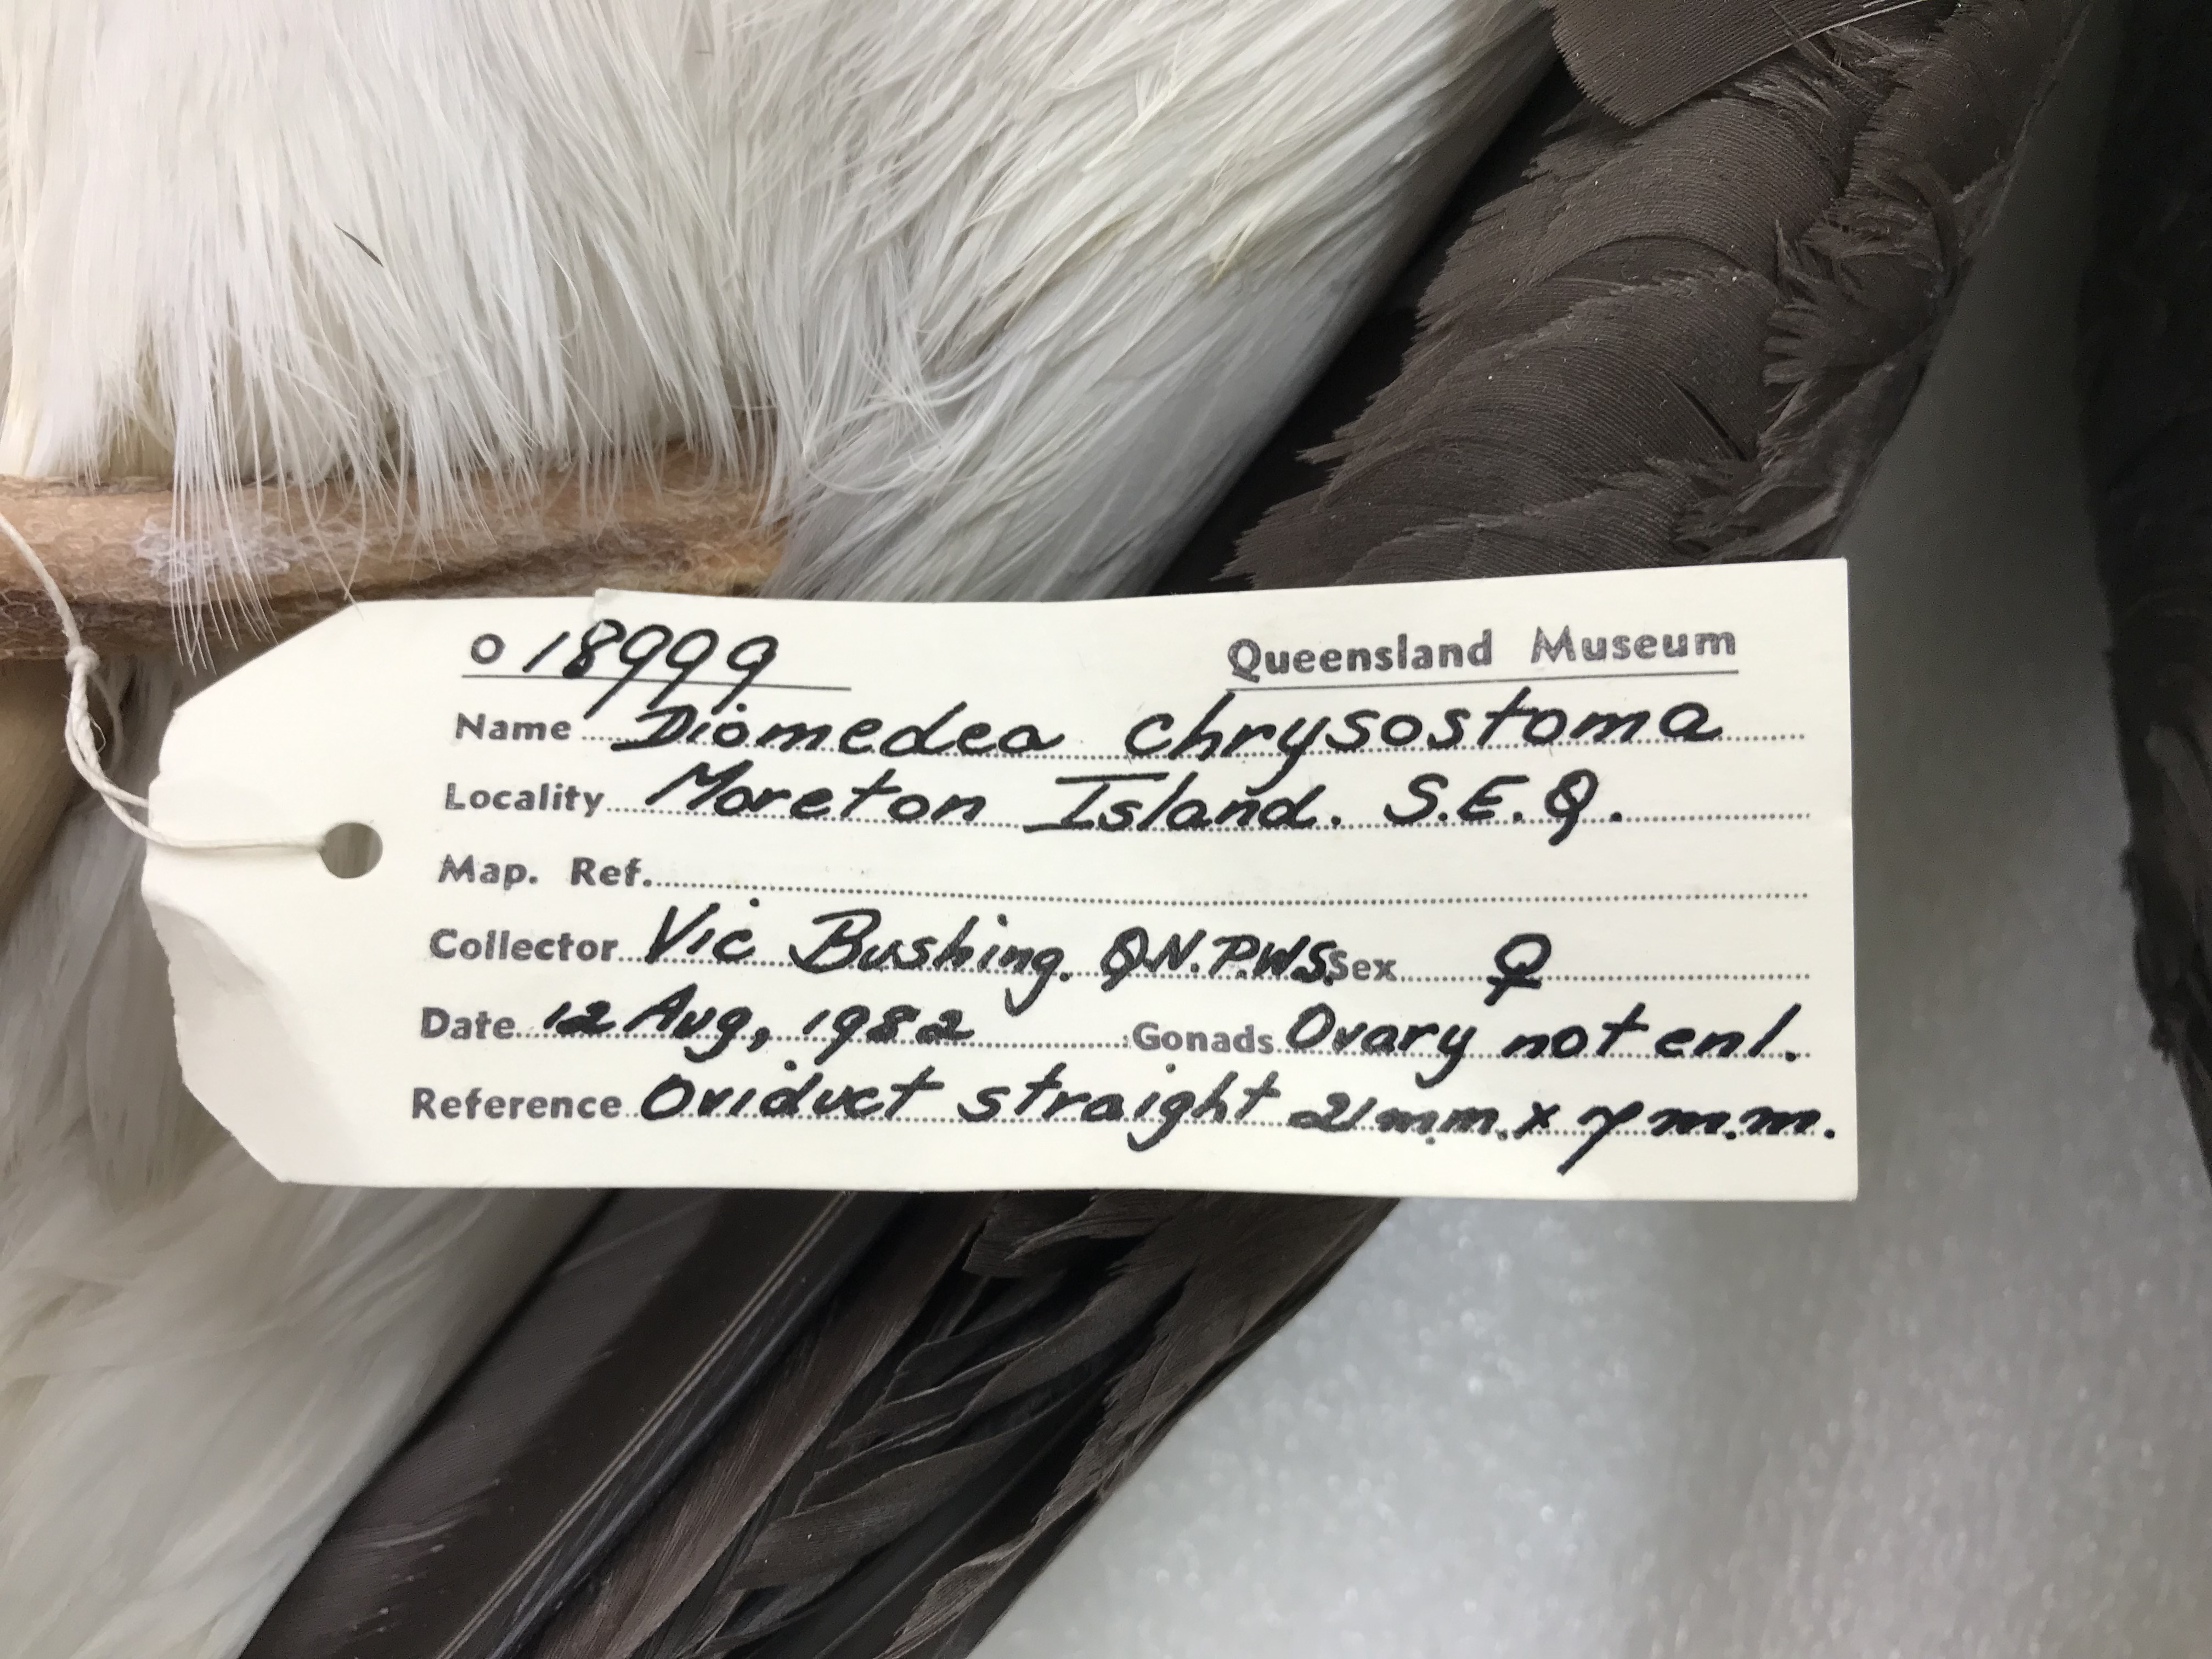 O 18999 Queensland Museum
Name Diomedea chrysostoma
Locality Moreton Island. S.E.Q.
Map. Ref.
Collector Vic Bushing. QN.PWS Sex ♀
Date 12 Aug, 1982 Gonads Ovary not enl.
Reference Oviduct straight 21mm x 7mm.